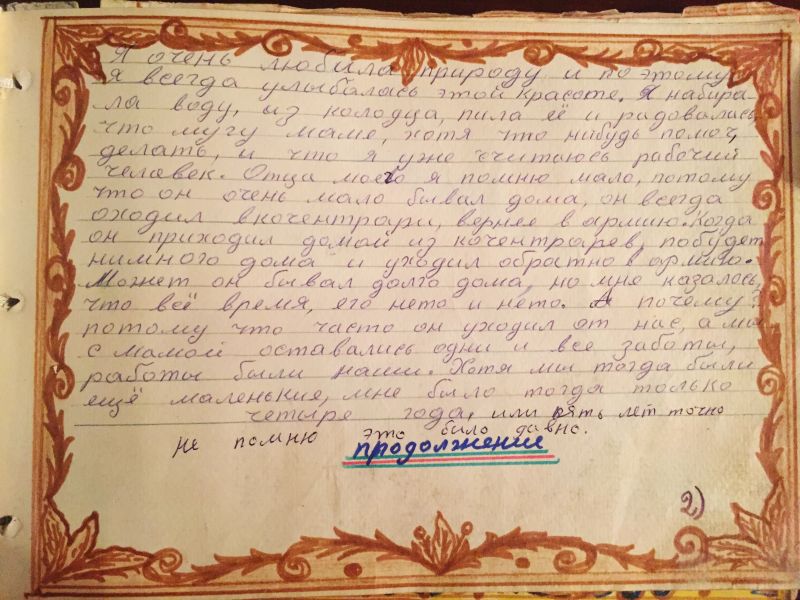 Я очень любила природу и по этому
я всегда улыбалась этой красоте. Я набира-
ла воду, из колодца, пила её и радовалась
что мугу маме, хотя что нибудь помоч,
делать, и что я уже считаюсь рабочий
человек. Отца моего я помню мало, потому
что он очень мало бывал дома, он всегда
оходил вкочентрари, вернее в армию. Когда
он приходил домой из кочентрарев, побудет
нимного дома и уходил обратно в армию.
Может он бывал долго дома, но мне казалось,
что всё время, его нето и нето. А почему?
потому что часто он уходил от нас, а мы
с мамой оставались одни и все заботы,
работы были наши. Хотя мы тогда были
ещё маленькие, мне было тогда только
четыре года, или пять лет точно
не помню это было давно.
продолжение
2)